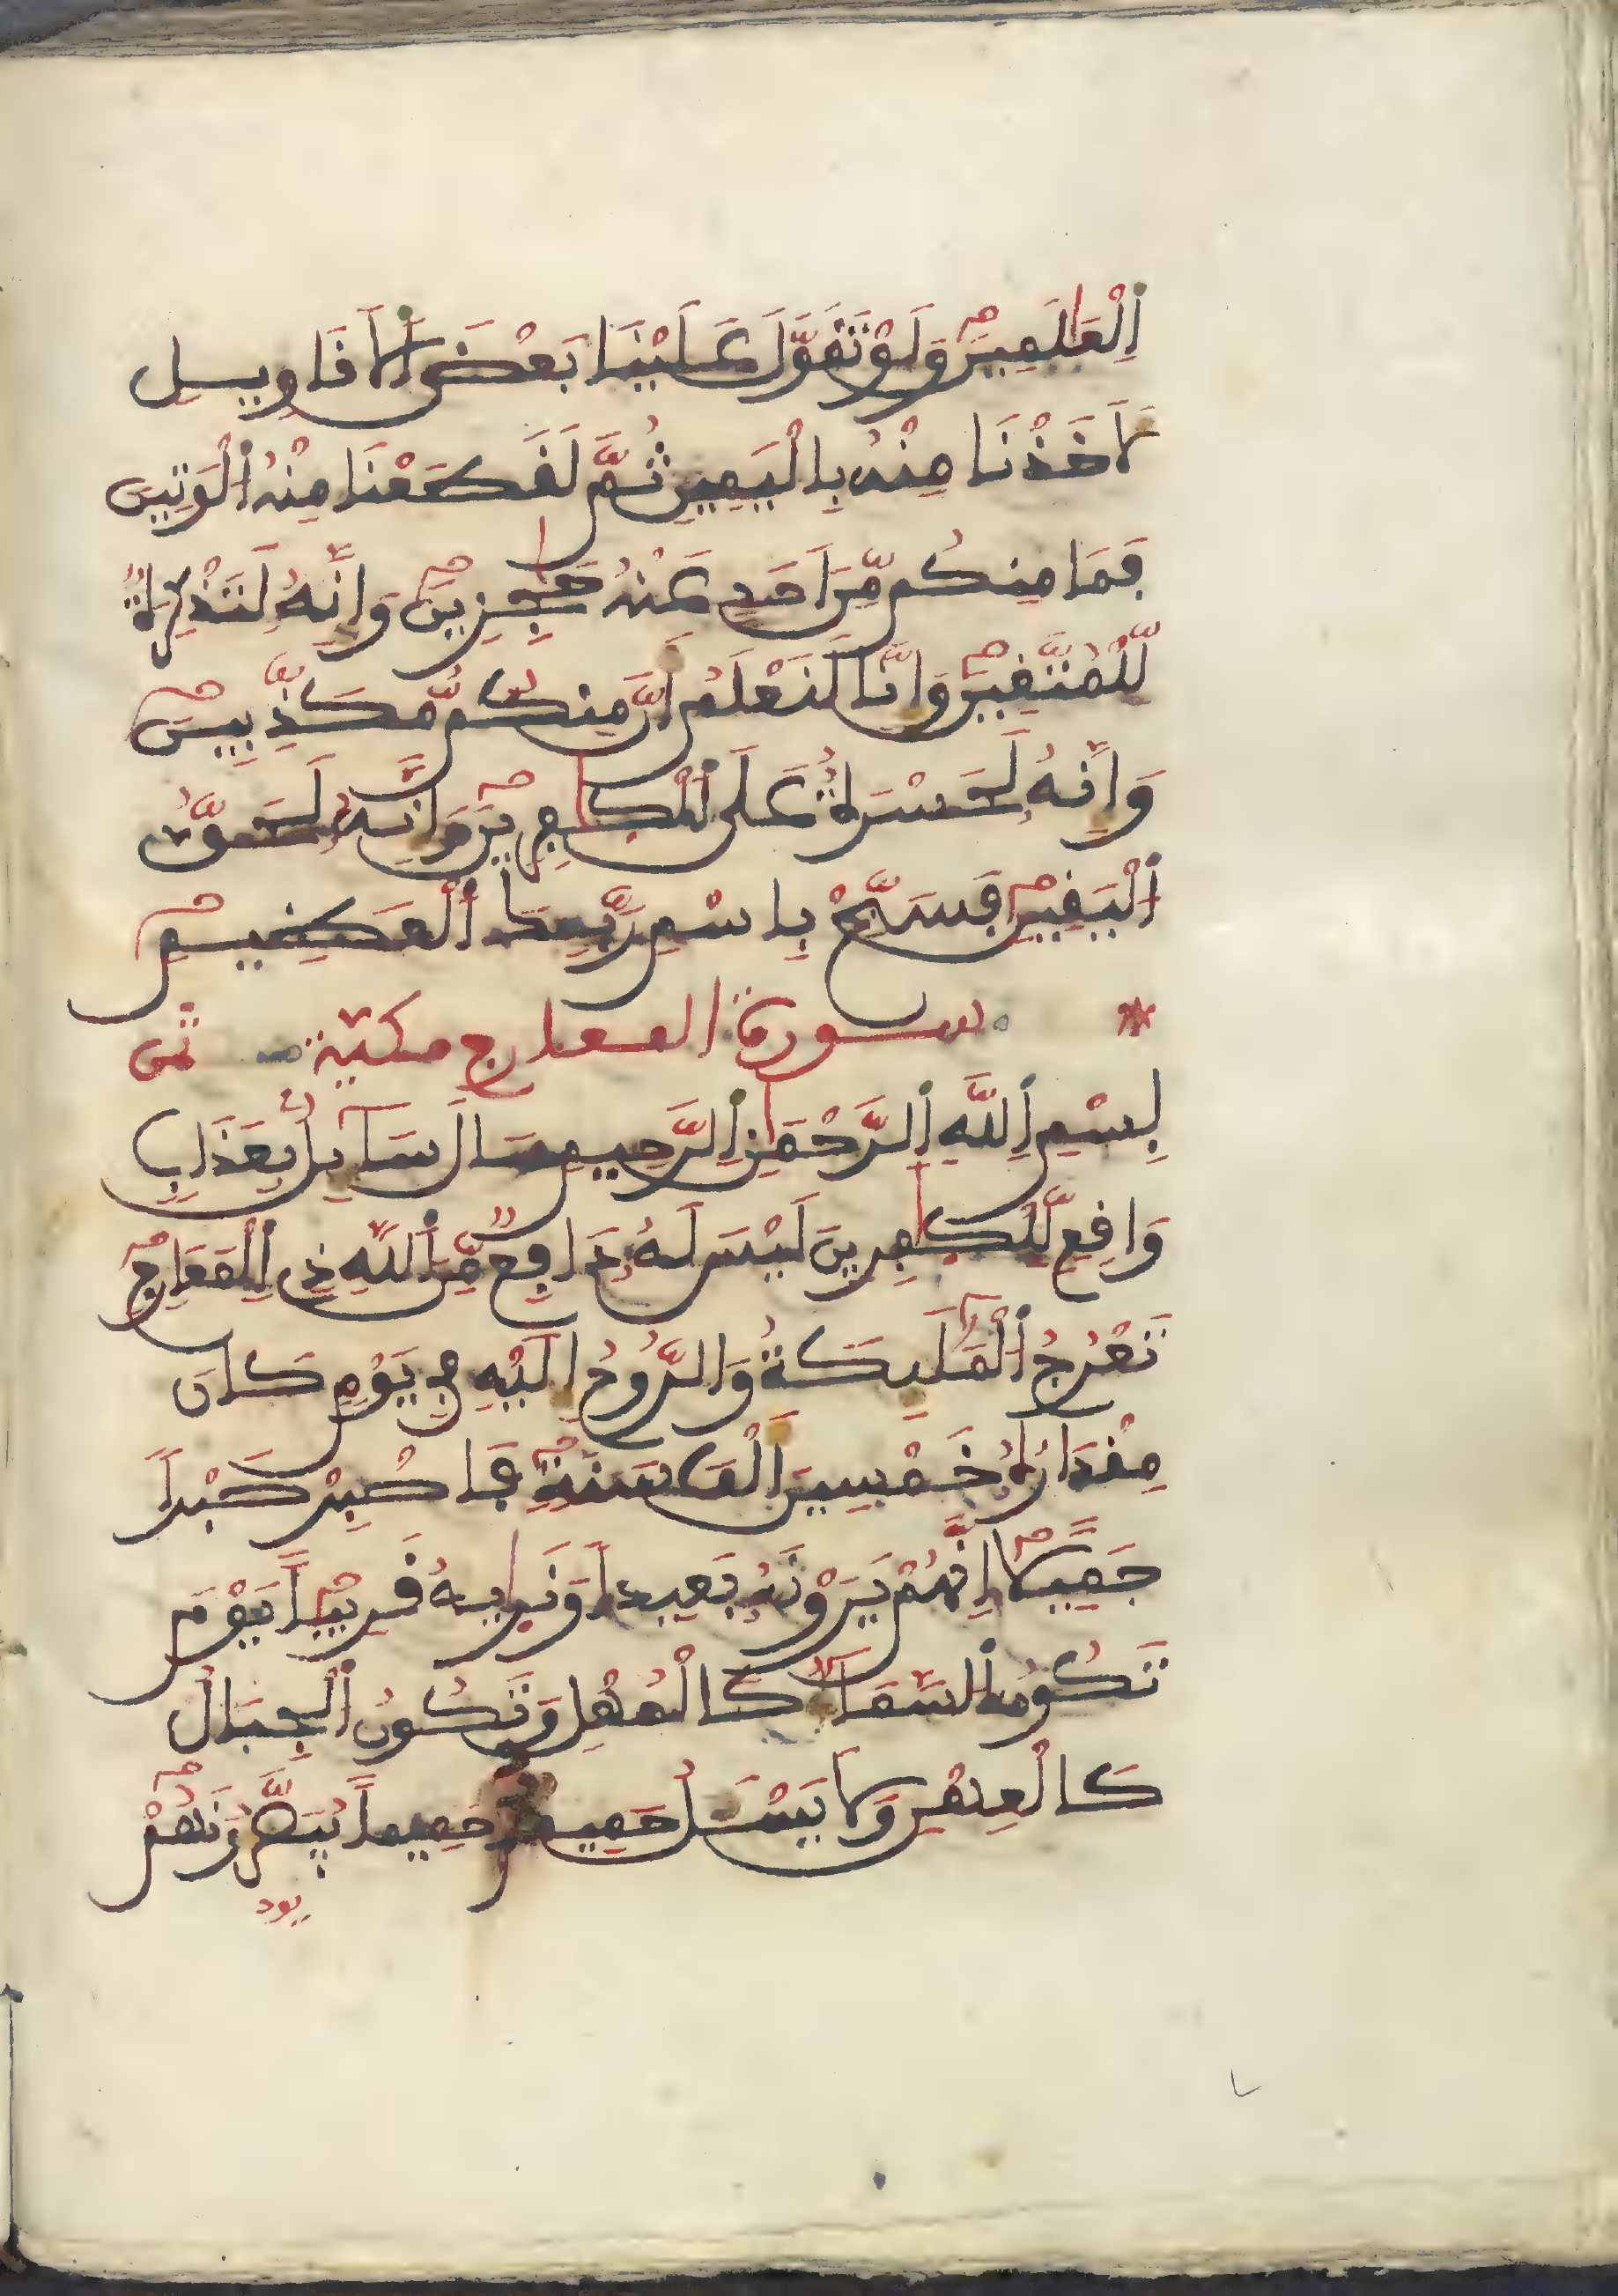 اِ۬لْعَٰلَمِينَ وَلَوْ تَقَوَّلَ عَلَيْنَا بَعْضَ اَ۬لَاقَاوِيلِ
لَأَخَذْنَا مِنْهُ بِالْيَمِينِ ثُمَّ لَقَطَعْنَا مِنْهُ اُ۬لْوَتِينَ
فَمَا مِنكُم مِّنَ اَحَدٍ عَنْهُ حَٰجِزِينَ وَإِنَّهُۥ لَتَذْكِرَةٌ
لِّلْمُتَّقِينَ وَإِنَّا لَنَعْلَمُ أَنَّ مِنكُم مُّكَذِّبِينَ
وَإِنَّهُۥ لَحَسْرَةٌ عَلَى اَ۬لْكَٰفِرِينَ وَإِنَّهُۥ لَحَقُّ
اُ۬لْيَقِينِ فَسَبِّحْ بِاسْمِ رَبِّكَ اَ۬لْعَظِيمِ
سورة المعارج مكية ثمن
بِسْمِ اِ۬للَّهِ اِ۬لرَّحْمَٰنِ اِ۬لرَّحِيمِ سَالَ سَآئِلٌۢ بِعَذَابٍ
وَاقِعٍ لِّلْكَٰفِرِينَ لَيْسَ لَهُۥ دَافِعٌ مِّنَ اَ۬للَّهِ ذِى اِ۬لْمَعَارِجِ
تَعْرُجُ اُ۬لْمَلَٰٓئِكَةُ وَالرُّوحُ إِلَيْهِ فِى يَوْمٍ كَانَ
مِقْدَارُهُۥ خَمْسِينَ أَلْفَ سَنَةٍ فَاصْبِرْ صَبْراً
جَمِيلًا إِنَّهُمْ يَرَوْنَهُۥ بَعِيداً وَنَر۪يٰهُ قَرِيباً يَوْمَ
تَكُونُ اُ۬لسَّمَآءُ كَالْمُهْلِ وَتَكُونُ اُ۬لْجِبَالُ
كَالْعِهْنِ وَلَا يَسْـَٔلُ حَمِيمٌ حَمِيماً يُبَصَّرُونَهُمْ
يود